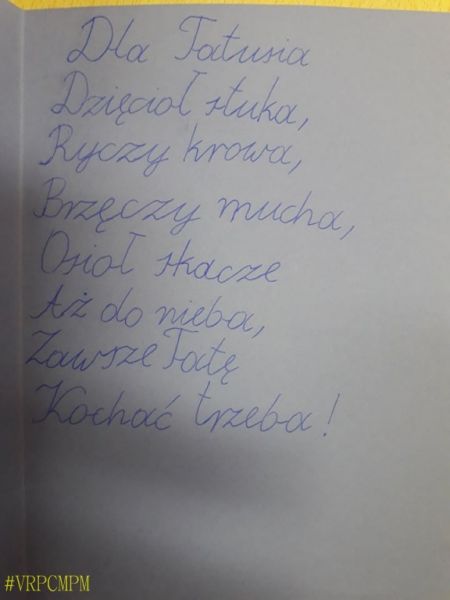 Dla Tatusia
Dzięcioł stuka,
Ryczy krowa,
Brzęczy mucha,
Osioł skacze
Aż do nieba,
Zawsze Tatę
Kochać trzeba!
#VRPCMPM